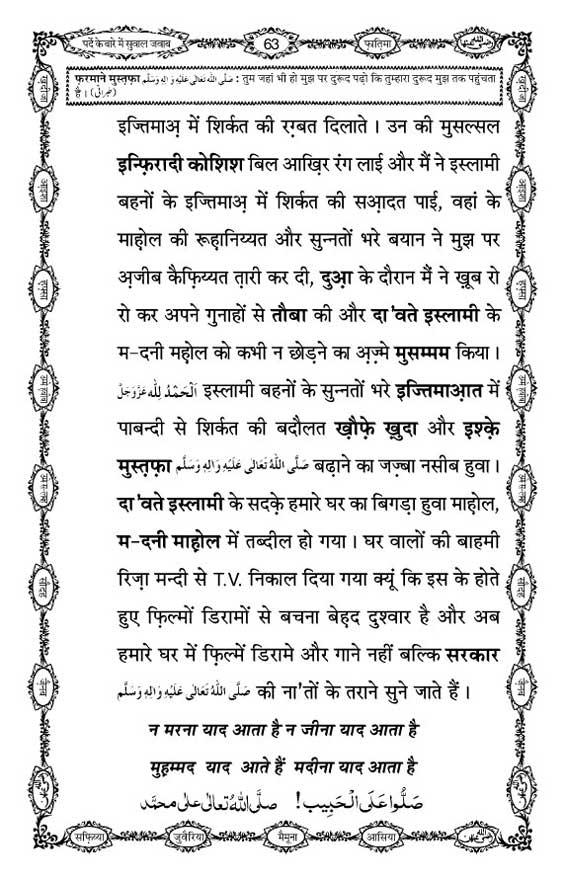 पर्दे के बारे में सुवाल जवाब
63
फ़ातिमा
फ़रमाने मुस्तफ़ा صَلَّى اللهُ تَعَالٰى عَلَيْهِ وَاٰلِهٖ وَسَلَّم : तुम जहां भी हो मुझ पर दुरूद पढ़ो कि तुम्हारा दुरूद मुझ तक पहुंचता
है । (طبرانی)
इज्तिमाअ़ में शिर्कत की रग़्बत दिलाते । उन की मुसल्सल
इन्फ़िरादी कोशिश बिल आख़िर रंग लाई और मैं ने इस्लामी
बहनों के इज्तिमाअ़ में शिर्कत की सआ़दत पाई, वहां के
माहोल की रूहानिय्यत और सुन्नतों भरे बयान ने मुझ पर
अ़जीब कैफ़िय्यत त़ारी कर दी, दुआ़ के दौरान मैं ने ख़ूब रो
रो कर अपने गुनाहों से तौबा की और दा'वते इस्लामी के
म-दनी महोल को कभी न छोड़ने का अ़ज़्मे मुसम्मम किया ।
اَلْحَمْدُ لِلّٰه عَزَّوَجَلَّ इस्लामी बहनों के सुन्नतों भरे इज्तिमाआ़त में
पाबन्दी से शिर्कत की बदौलत ख़ौफ़े ख़ुदा और इश्क़े
मुस्तफ़ा صَلَّى اللهُ تَعَالٰى عَلَيْهِ وَاٰلِهٖ وَسَلَّم बढ़ाने का जज़्बा नसीब हुवा ।
दा'वते इस्लामी के सदक़े हमारे घर का बिगड़ा हुवा माहोल,
म-दनी माहोल में तब्दील हो गया । घर वालों की बाहमी
रिज़ा मन्दी से T.V. निकाल दिया गया क्यूं कि इस के होते
हुए फ़िल्मों डिरामों से बचना बेहद दुश्वार है और अब
हमारे घर में फ़िल्में डिरामे और गाने नहीं बल्कि सरकार
صَلَّى اللهُ تَعَالٰى عَلَيْهِ وَاٰلِهٖ وَسَلَّم की ना'तों के तराने सुने जाते हैं ।
न मरना याद आता है न जीना याद आता है
मुहम्मद याद आते हैं मदीना याद आता है
صَلُّوا عَلَى الْحَبِيب! صلَّى اللهُ تعالٰى على محمَّد
सफ़िय्या
जुवैरिया
मैमूना
आसिया